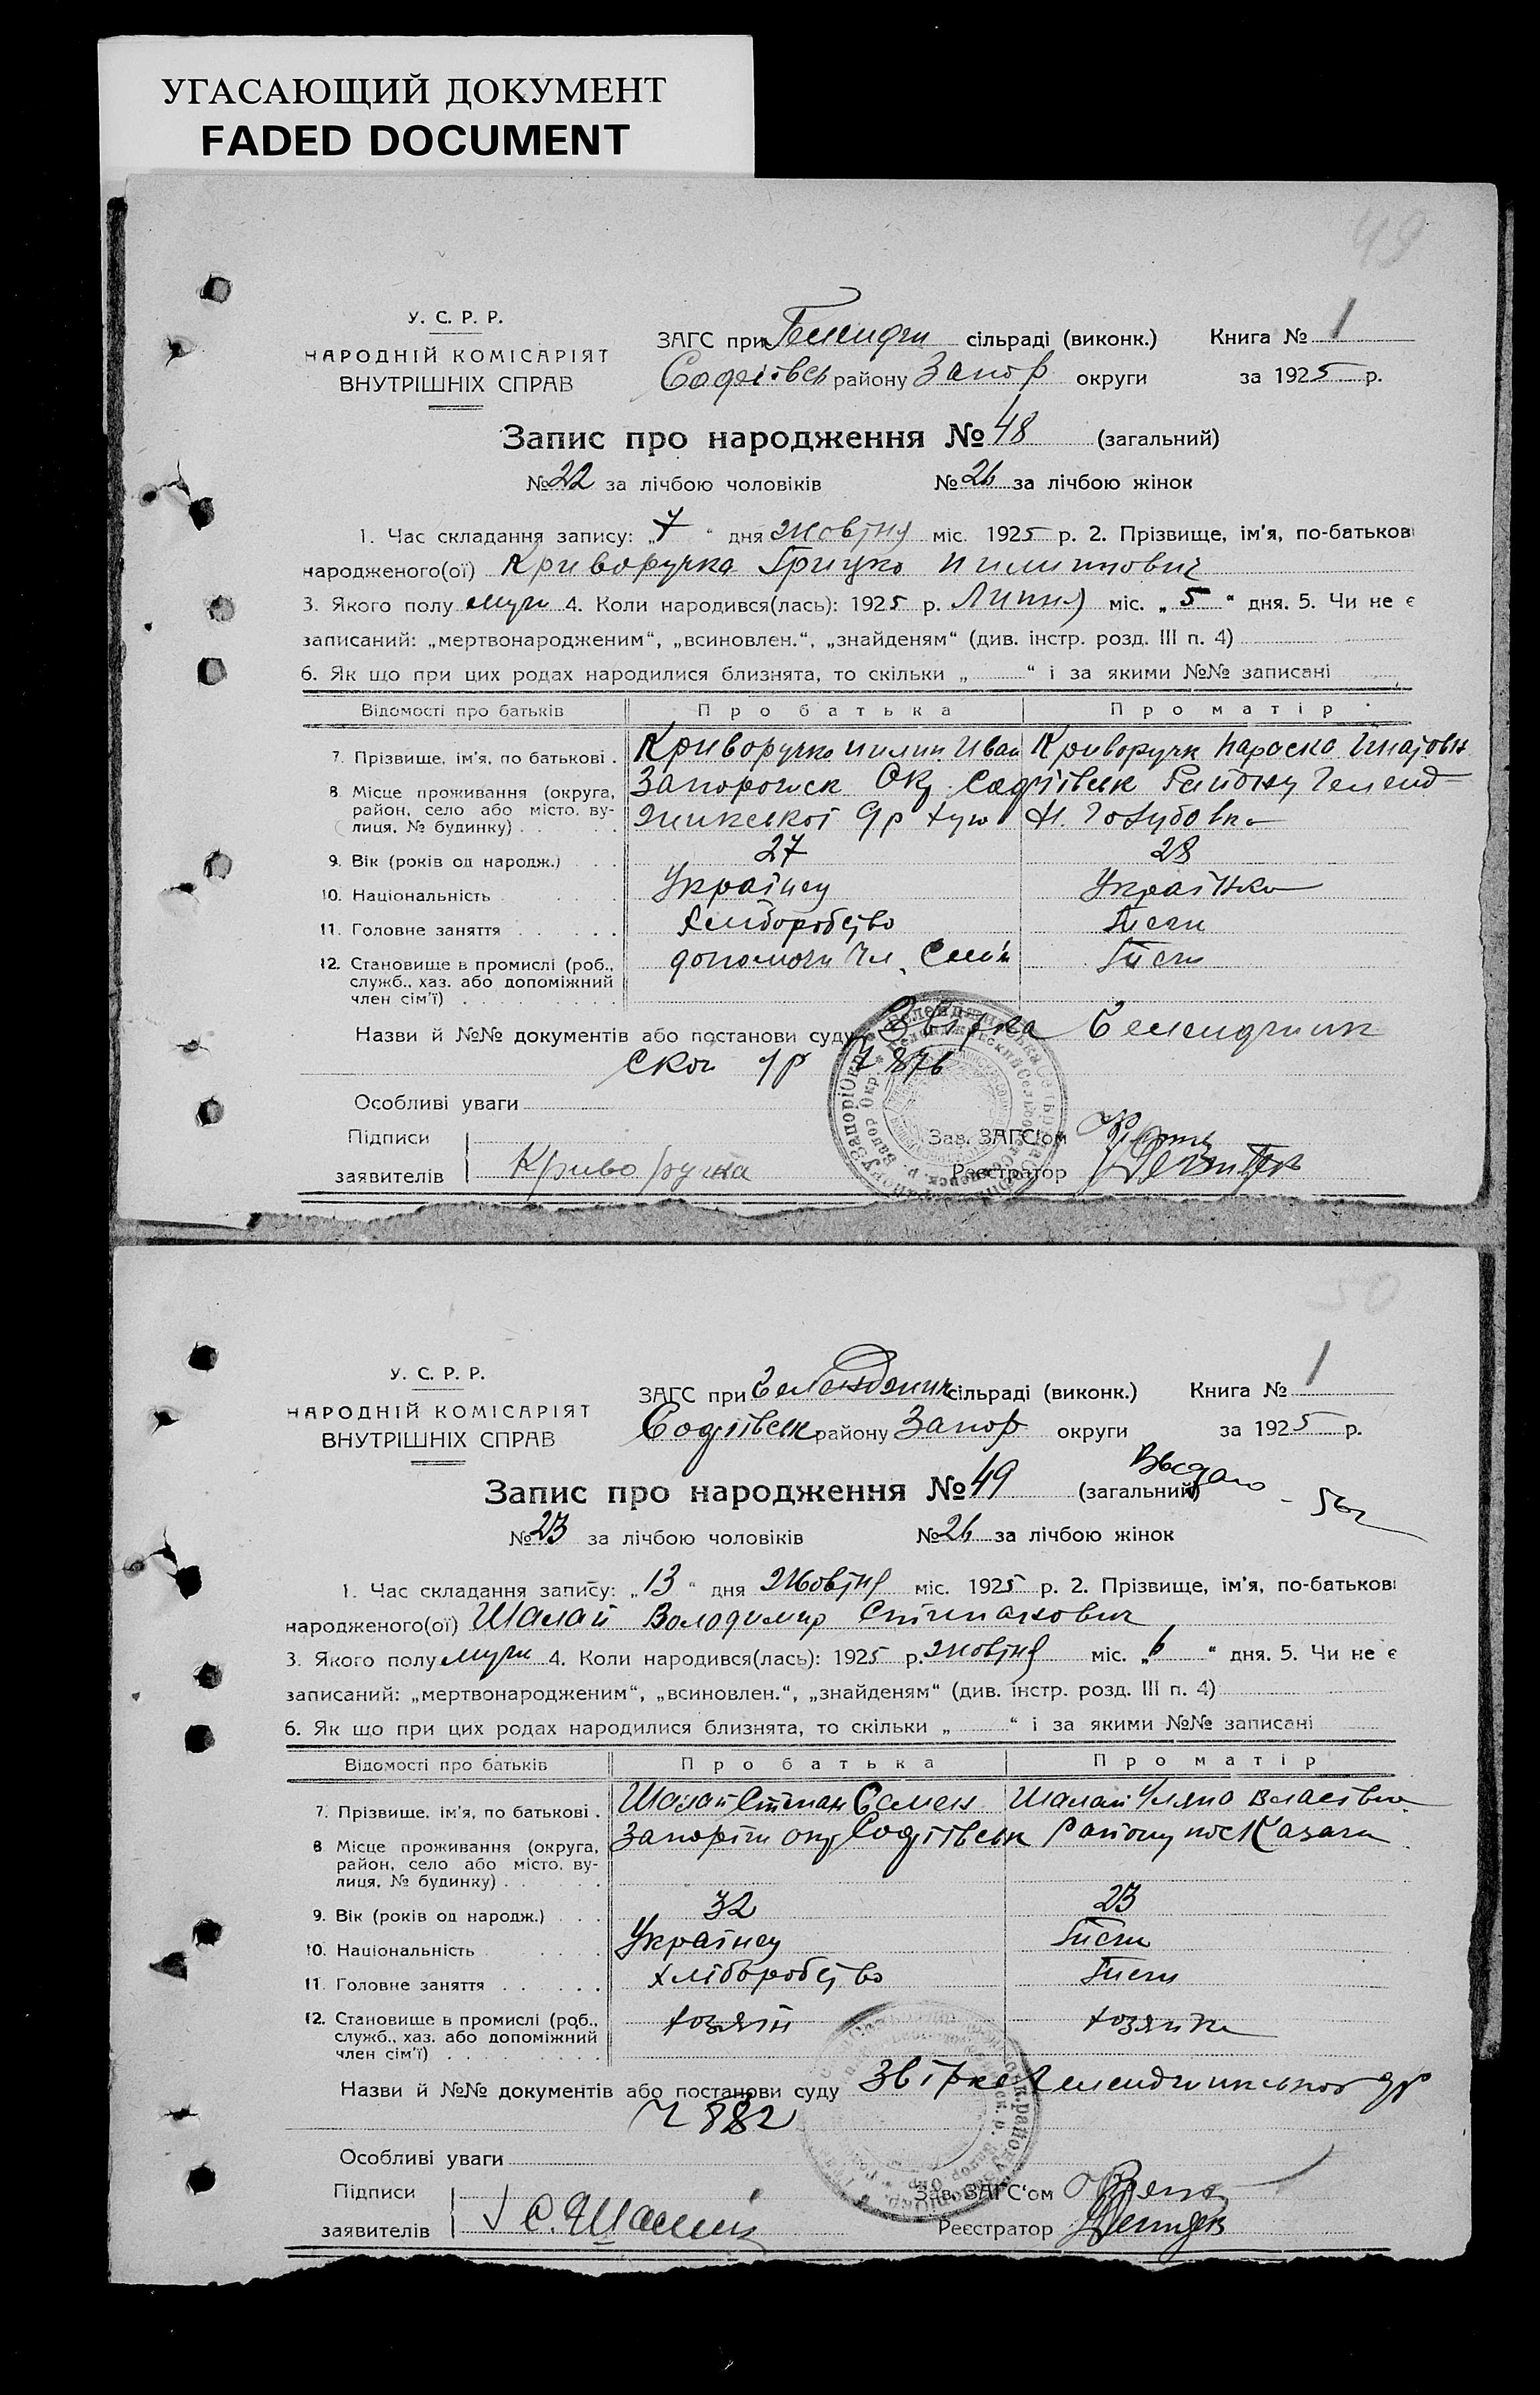 УГАСАЮЩИЙ ДОКУМЕНТ
FADED DOCUMENT
49
У. С. Р. Р.
НАРОДНІЙ КОМІСАРІЯТ
ВНУТРІШНІХ СПРАВ
ЗАГС при сільраді (виконк.) Книга № 1
району Запор округи за 1925 р.
Запис про народження № 48 (загальний)
№ 22 за лічбою чоловіків № 26 за лічбою жінок
1. Час складання запису: „7“ дня жовтня міс. 1925 р. 2. Прізвище, ім'я, по-батькові
народженого(ої) Криворучка Грицко Пилипович
3. Якого полу муж 4. Коли народився(лась): 1925 р. Липня міс. „5“ дня. 5. Чи не є
записаний: „мертвонародженим“, „всиновлен.“, „знайденям“ (див. інстр. розд. III п. 4)
6. Як що при цих родах народилися близнята, то скільки „ “ і за якими №№ записані
Відомості про батьків Про батька Про матір
7. Прізвище, ім'я, по батькові . Криворучко Пилип Иван Криворучк Параска
8 Місце проживання (округа, Запорожск Окр. Софіївськ Району Геленд
район, село або місто, ву-
лиця, № будинку) . . жикської Голубовка
9. Вік (років од народж.) . . . 27 28
10. Національність . . . . Українец Українка
11. Головне заняття . . . . . Хліборобство
12. Становище в промислі (роб., допомож чл. Сем'ї
служб., хаз. або допоміжний
член сім'ї) . . . . . . . .
Назви й №№ документів або постанови суду
876
Особливі уваги
Підписи Зав. ЗАГС'ом
заявителів Криворучка Реєстратор
50
У. С. Р. Р.
НАРОДНІЙ КОМІСАРІЯТ
ВНУТРІШНІХ СПРАВ
ЗАГС при Геленджик сільраді (виконк.) Книга № 1
Софіївськ району Запор округи за 1925 р.
Запис про народження № 49 (загальний)
№ 23 за лічбою чоловіків № 26 за лічбою жінок
1. Час складання запису: „13“ дня Жовтня міс. 1925 р. 2. Прізвище, ім'я, по-батькові
народженого(ої) Шалай Володимир
3. Якого полу муж 4. Коли народився(лась): 1925 р. жовтня міс. „6“ дня. 5. Чи не є
записаний: „мертвонародженим“, „всиновлен.“, „знайденям“ (див. інстр. розд. III п. 4)
6. Як що при цих родах народилися близнята, то скільки „ “ і за якими №№ записані
Відомості про батьків Про батька Про матір
7. Прізвище, ім'я, по батькові . Шалай Степан Семен Шалай Уляна
8 Місце проживання (округа, Запоріж окр Софіївськ Району
район, село або місто, ву-
лиця, № будинку) . . . . . .
9. Вік (років од народж.) . . . 32 23
10. Національність . . . . Українец
11. Головне заняття . . . . . Хліборобство
12. Становище в промислі (роб., хозяїн хозяйка
служб., хаз. або допоміжний
член сім'ї) . . . . . . . .
Назви й №№ документів або постанови суду Звірка
882
Особливі уваги
Підписи Зав. ЗАГС'ом
заявителів С. Шалай Реєстратор